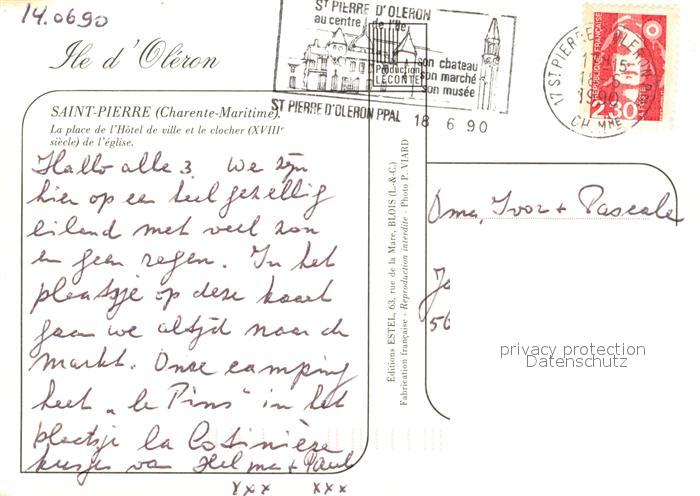 14.06 90
Ile d'Oléron
ST PIERRE D'OLERON
au centre de l'Ile
son chateau
son marché
son musée
Production
LECONTE
ST PIERRE D'OLERON PPAL 18 6 90
17 ST PIERRE D'OLERON PPAL
18-6
1990
CH. MME
REPUBLIQUE FRANÇAISE
2,30
SAINT-PIERRE (Charente-Maritime).
La place de l'Hôtel de ville et le clocher (XVIIIe
siècle) de l'église.
Hallo alle 3. We zijn
hier op een heel gezellig
eiland met veel zon
en geen regen. In het
plaatsje op deze kaart
gaan we altijd naar de
markt. Onze camping
heet „le Pins" in het
plaatsje la Cotinière
kusjes van Helma + Paul
xxx xxx
Éditions ESTEL, 63, rue de la Mare, BLOIS (L.-&-C.)
Fabrication française - Reproduction interdite - Photo P. VIARD
Oma, Ivor + Pascale
56
privacy protection
Datenschutz